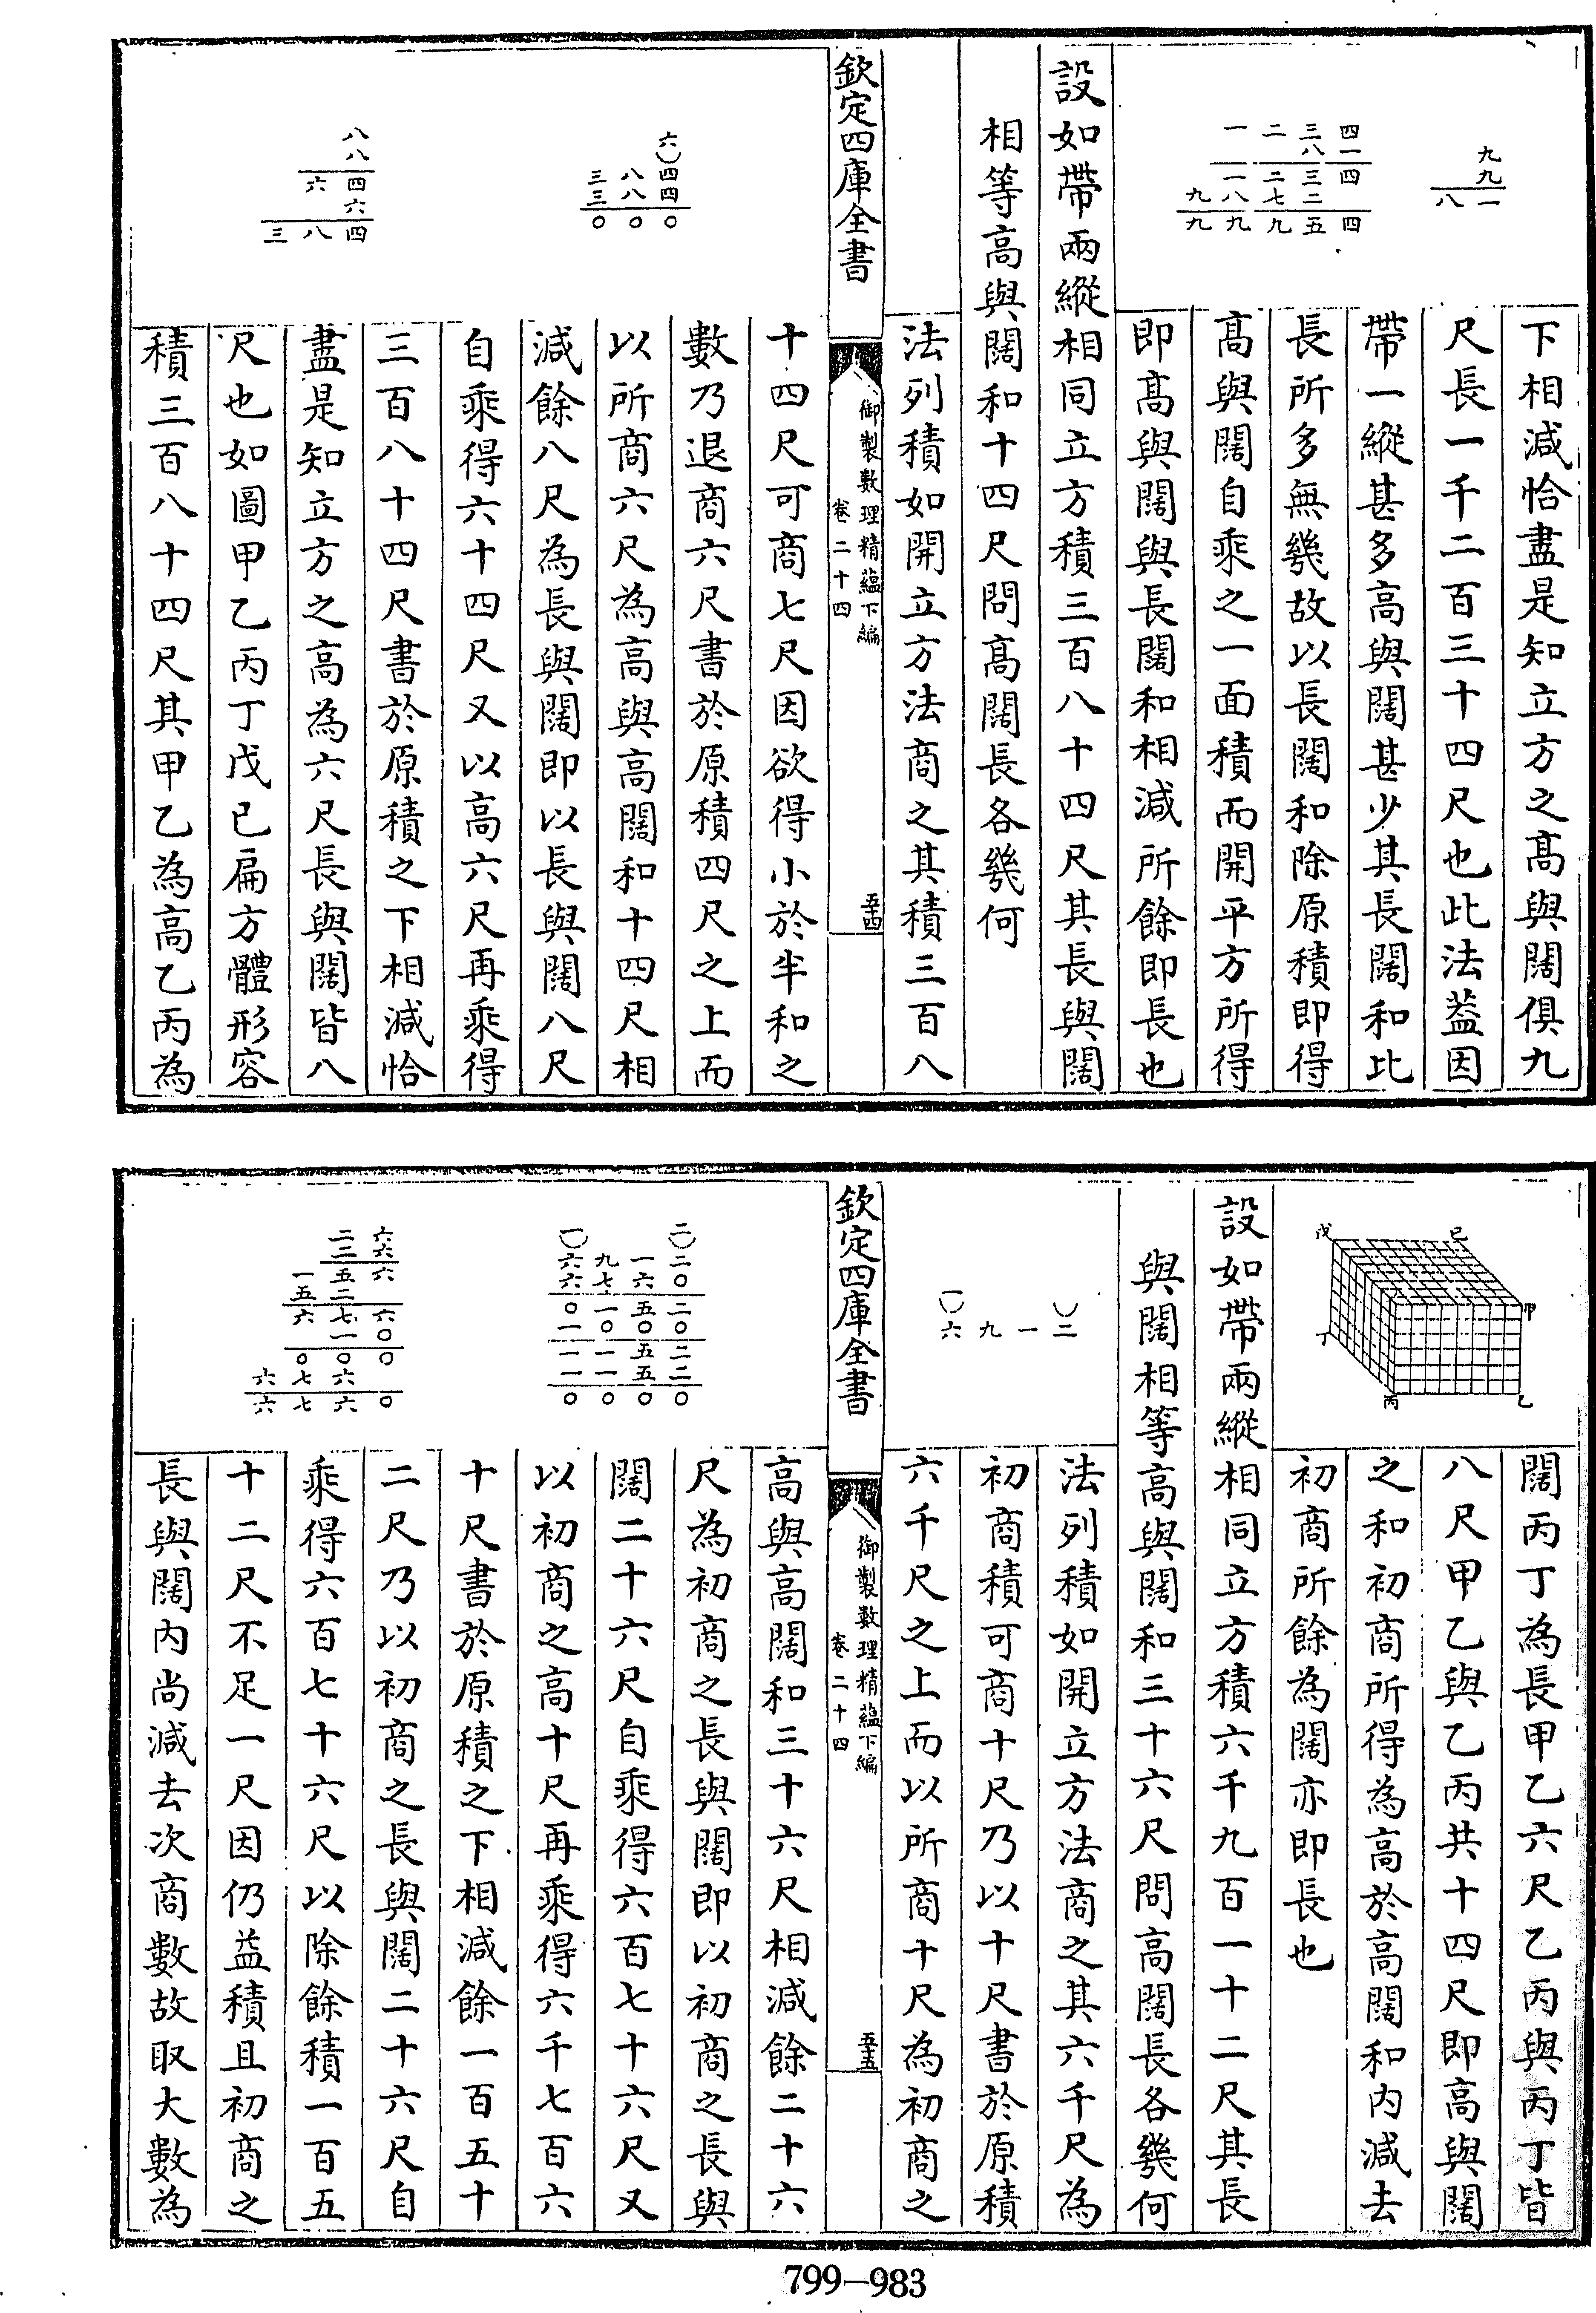 九
九
八一
一二三四
八一
一二三四
九八七二
九九九五四
下相減恰盡是知立方之髙與闊俱九
尺長一千二百三十四尺也此法葢因
帶一縱甚多高與闊甚少其長闊和比
長所多無幾故以長闊和除原積即得
高與闊自乘之一面積而開平方所得
即髙與闊與長闊和相減所餘即長也
設如帶兩縱相同立方積三百八十四尺其長與闊
相等高與闊和十四尺問髙闊長各幾何
法列積如開立方法商之其積三百八
欽定四庫全書
御製數理精蘊下編
卷二十四
五十四
六
三八四
三八四
〇〇〇
八
八
六四
六
三八四
十四尺可商七尺因欲得小於半和之
數乃退商六尺書於原積四尺之上而
以所商六尺為高與高闊和十四尺相
減餘八尺為長與闊即以長與闊八尺
自乘得六十四尺又以高六尺再乘得
三百八十四尺書於原積之下相減恰
盡是知立方之高為六尺長與闊皆八
尺也如圖甲乙丙丁戊己扁方體形容
積三百八十四尺其甲乙為高乙丙為
戊
己
甲
丁
丙
乙
闊丙丁為長甲乙六尺乙丙與丙丁皆
八尺甲乙與乙丙共十四尺即高與闊
之和初商所得為高於高闊和內減去
初商所餘為闊亦即長也
設如帶兩縱相同立方積六千九百一十二尺其長
與闊相等高與闊和三十六尺問高闊長各幾何
一
六九一二
法列積如開立方法商之其六千尺為
初商積可商十尺乃以十尺書於原積
六千尺之上而以所商十尺為初商之
欽定四庫全書
御製數理精蘊下編
卷二十四
五十五
一二
六九一二
六七六〇
〇一五二
一〇〇〇
一一五二
一一五二
〇〇〇〇
二六
二六
一五六
五二
六七六
一〇
〇〇〇
六七六
六七六〇
高與高闊和三十六尺相減餘二十六
尺為初商之長與闊即以初商之長與
闊二十六尺自乘得六百七十六尺又
以初商之高十尺再乘得六千七百六
十尺書於原積之下相減餘一百五十
二尺乃以初商之長與闊二十六尺自
乘得六百七十六尺以除餘積一百五
十二尺不足一尺因仍益積且初商之
長與闊內尚減去次商數故取大數為
799—983